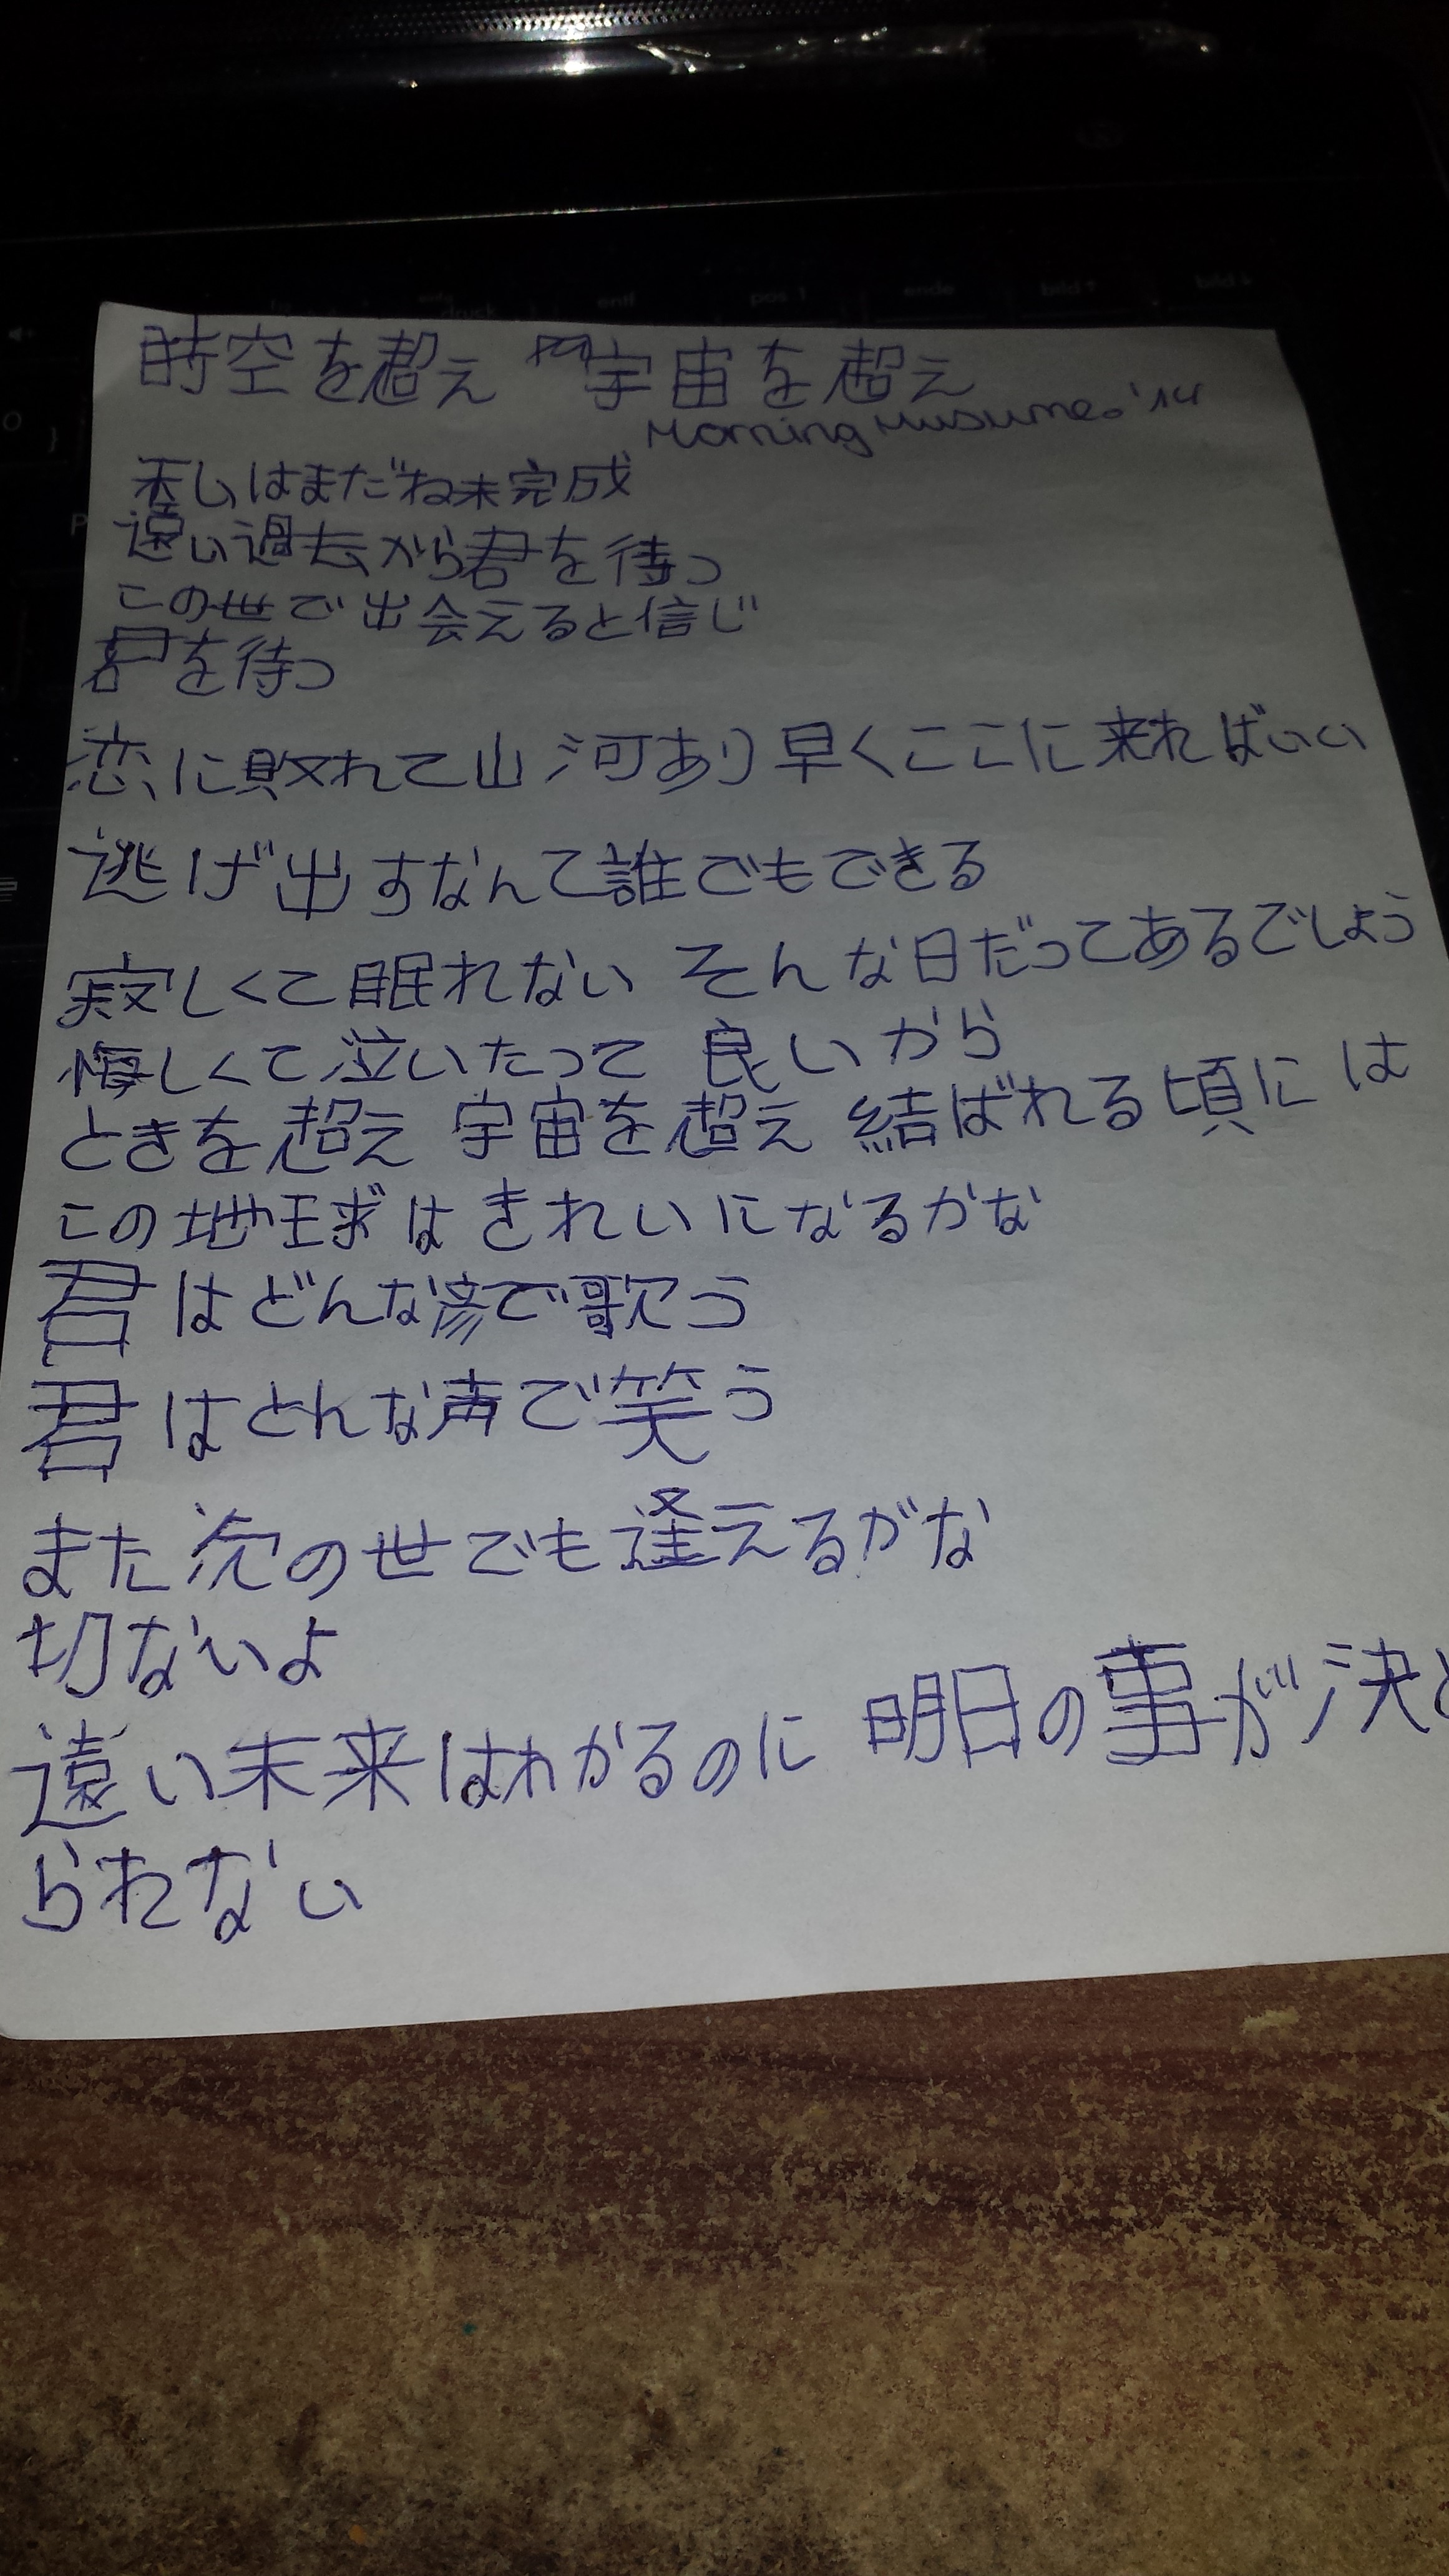 時空を超え 宇宙を超え
Morning Musume。'14
しはまだね未完成
遠い過去から君を待つ
この世で出会えると信じ
君を待つ
恋に敗れて山河あり早くここに来ればいい
逃げ出すなんて誰でもできる
寂しくて眠れない そんな日だってあるでしょう
悔しくて泣いたって 良いから
ときを超え 宇宙を超え 結ばれる頃には
この地球は きれいになるかな
君はどんな彦で歌う
君はとんな声で笑う
また次の世でも逢えるがな
切ないよ
遠い未来はわかるのに 明日の事が決と
られない